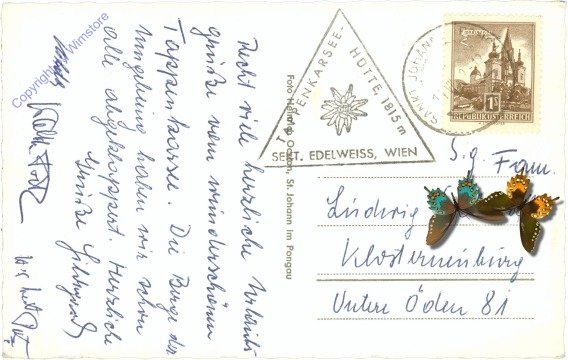 Recht viele herzliche Urlaubs-
grüße vom wunderschönen
Tappenkarsee. Die Berge der
Umgebung haben wir schon
alle abgeklappert. Herzliche
Grüße
Copyright by Wimstore
Foto Helmut St. Johann im Pongau
TAPPENKARSEE-HÜTTE, 1815 m
SEKT. EDELWEISS, WIEN
SANKT JOHANN
1S
REPUBLIK ÖSTERREICH
S. g. Fam.
Ludwig
Klosterneuburg
Untere Öden 81